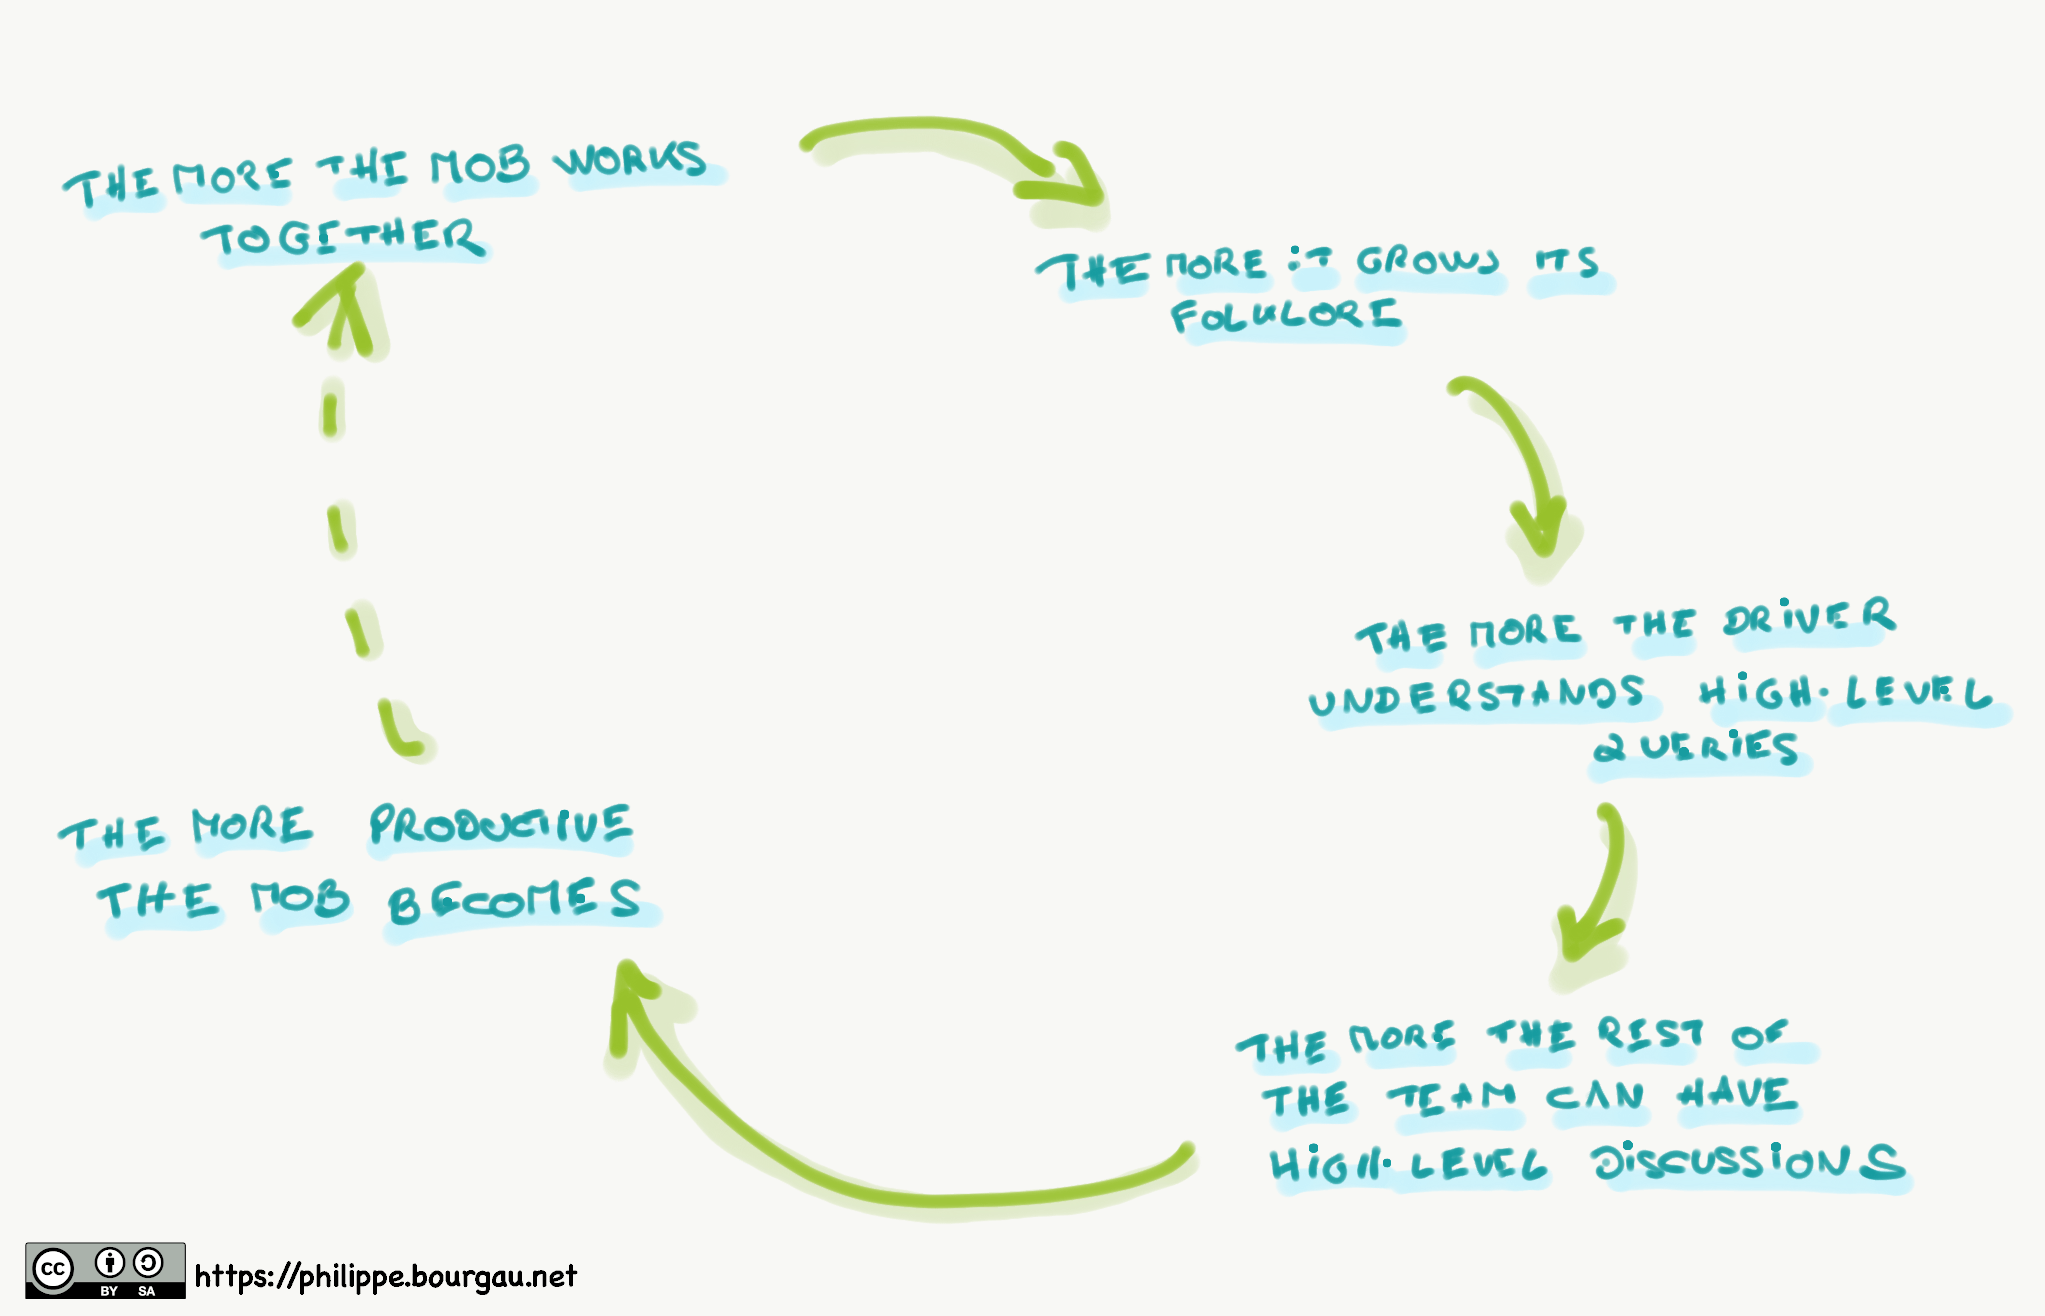 THE MORE THE MOB WORKS
TOGETHER
THE MORE iT GROWS iTS
FOLKLORE
THE MORE THE DRiVER
UNDERSTANDS HiGH-LEVEL
QUERiES
THE MORE THE REST OF
THE TEAM CAN HAVE
HiGH-LEVEL DiSCUSSiONS
THE MORE PRODUCTiVE
THE MOB BECOMES
cc BY SA
https://philippe.bourgau.net